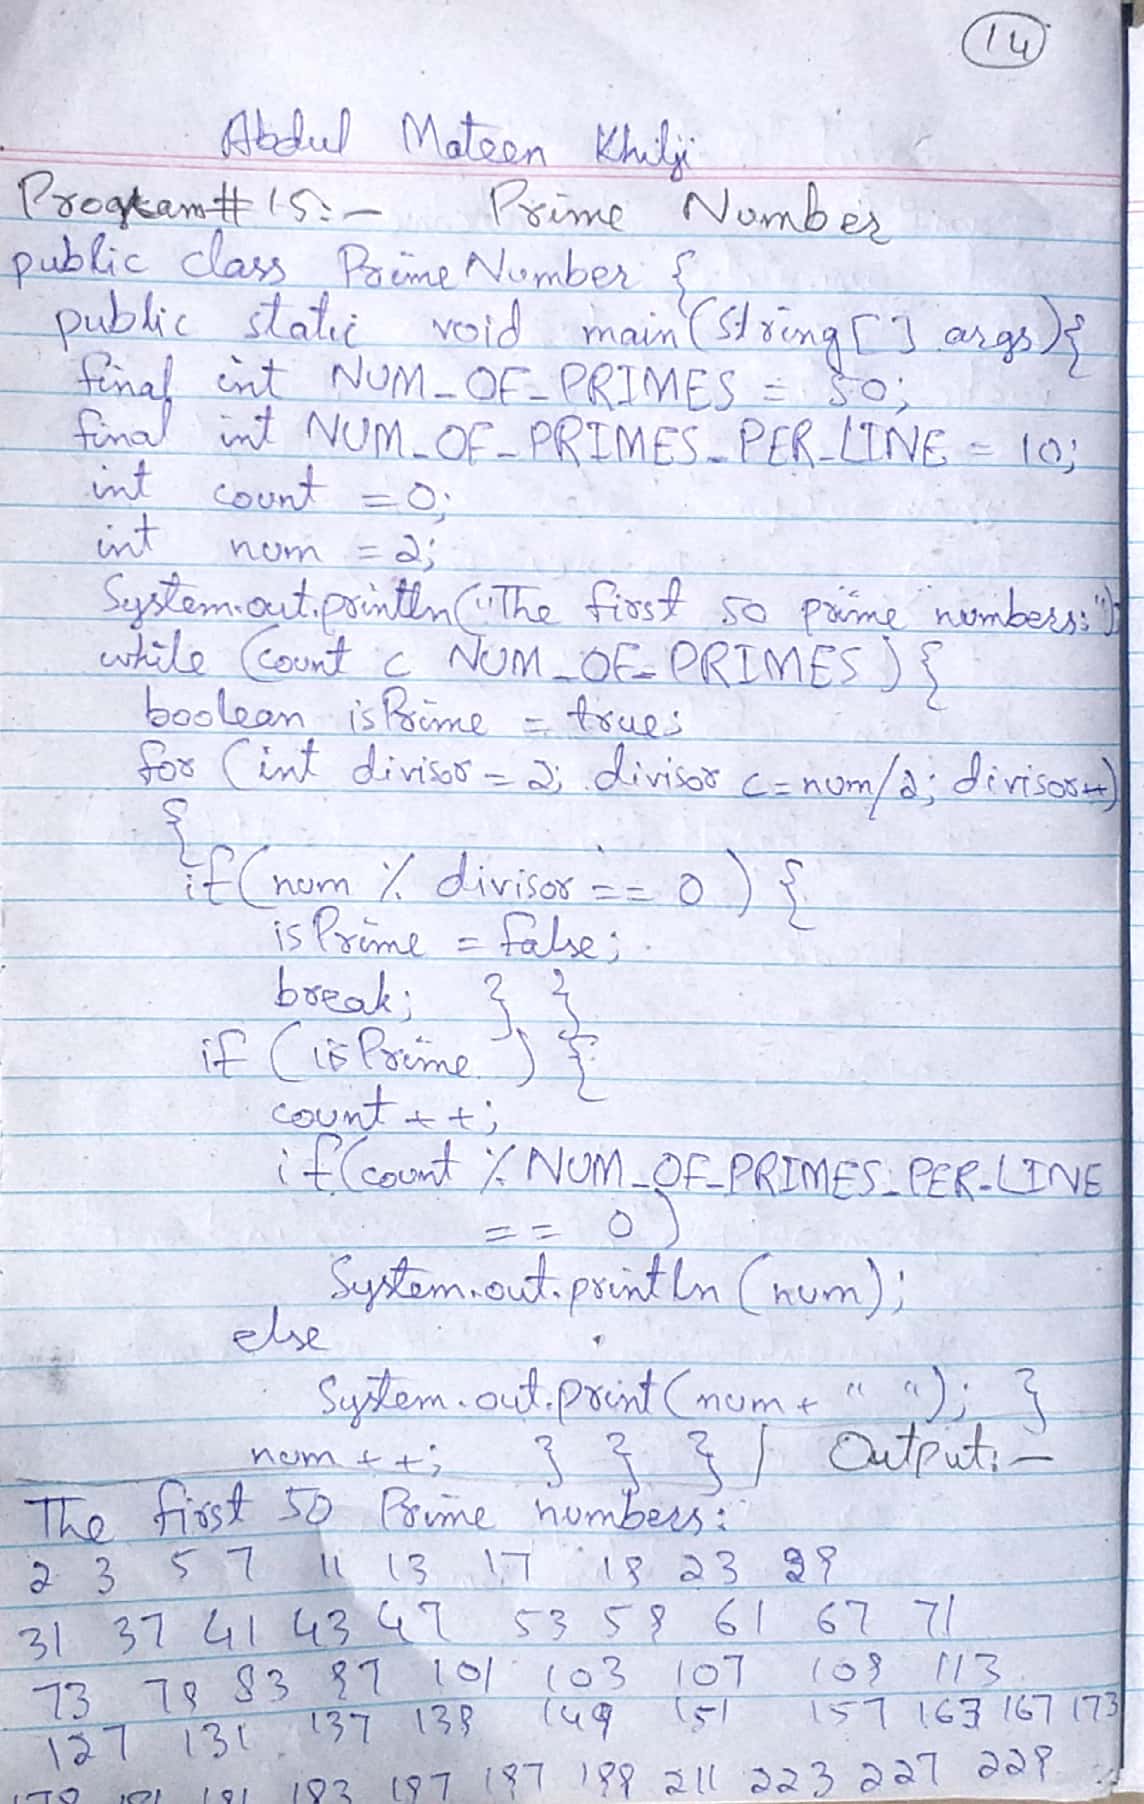 14
Abdul Mateen Khilji
Program # 15:- Prime Number
public class PrimeNumber {
public static void main(String[] args){
final int NUM_OF_PRIMES = 50;
final int NUM_OF_PRIMES_PER_LINE = 10;
int count = 0;
int num = 2;
System.out.println("The first 50 prime numbers:");
while (count < NUM_OF_PRIMES) {
boolean isPrime = true;
for (int divisor = 2; divisor <= num/2; divisor++)
{
if(num % divisor == 0) {
isPrime = false;
break; } }
if (isPrime) {
count++;
if(count % NUM_OF_PRIMES_PER_LINE
== 0)
System.out.println(num);
else
System.out.print(num + " "); }
num++; } } } | Output:-
The first 50 Prime numbers:
2 3 5 7 11 13 17 19 23 29
31 37 41 43 47 53 59 61 67 71
73 79 83 97 101 103 107 109 113
127 131 137 139 149 151 157 163 167 173
193 197 199 211 223 227 229